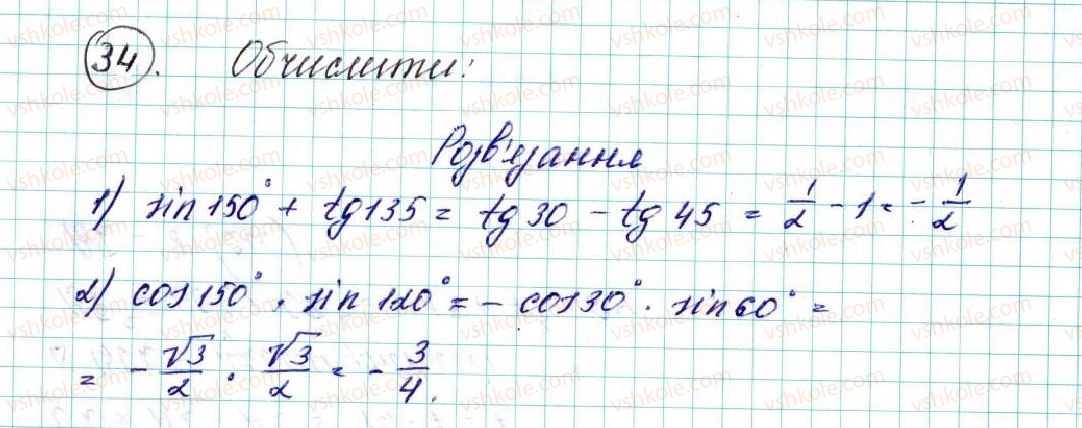 34. Обчислити:
Розв'язання
1) sin 150° + tg 135 = tg 30 - tg 45 = 1/2 - 1 = - 1/2
2) cos 150° · sin 120° = - cos 30° · sin 60° =
= - √3/2 · √3/2 = - 3/4.